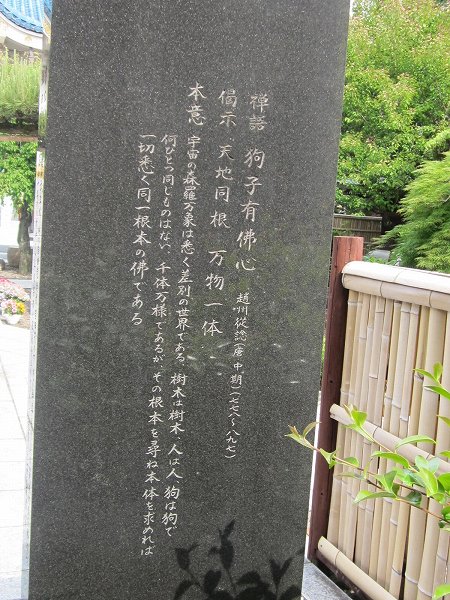 禅語 狗子有佛心
趙州從諗(唐中期 七七八~八九七)
偈示 天地同根 万物一体
本意 宇宙の森羅万象は悉く差別の世界である、樹木は樹木、人は人、狗は狗で
何ひとつ同じものはない、千体万様であるが、その根本を尋ね本体を求めれば
一切悉く同一根本の佛である